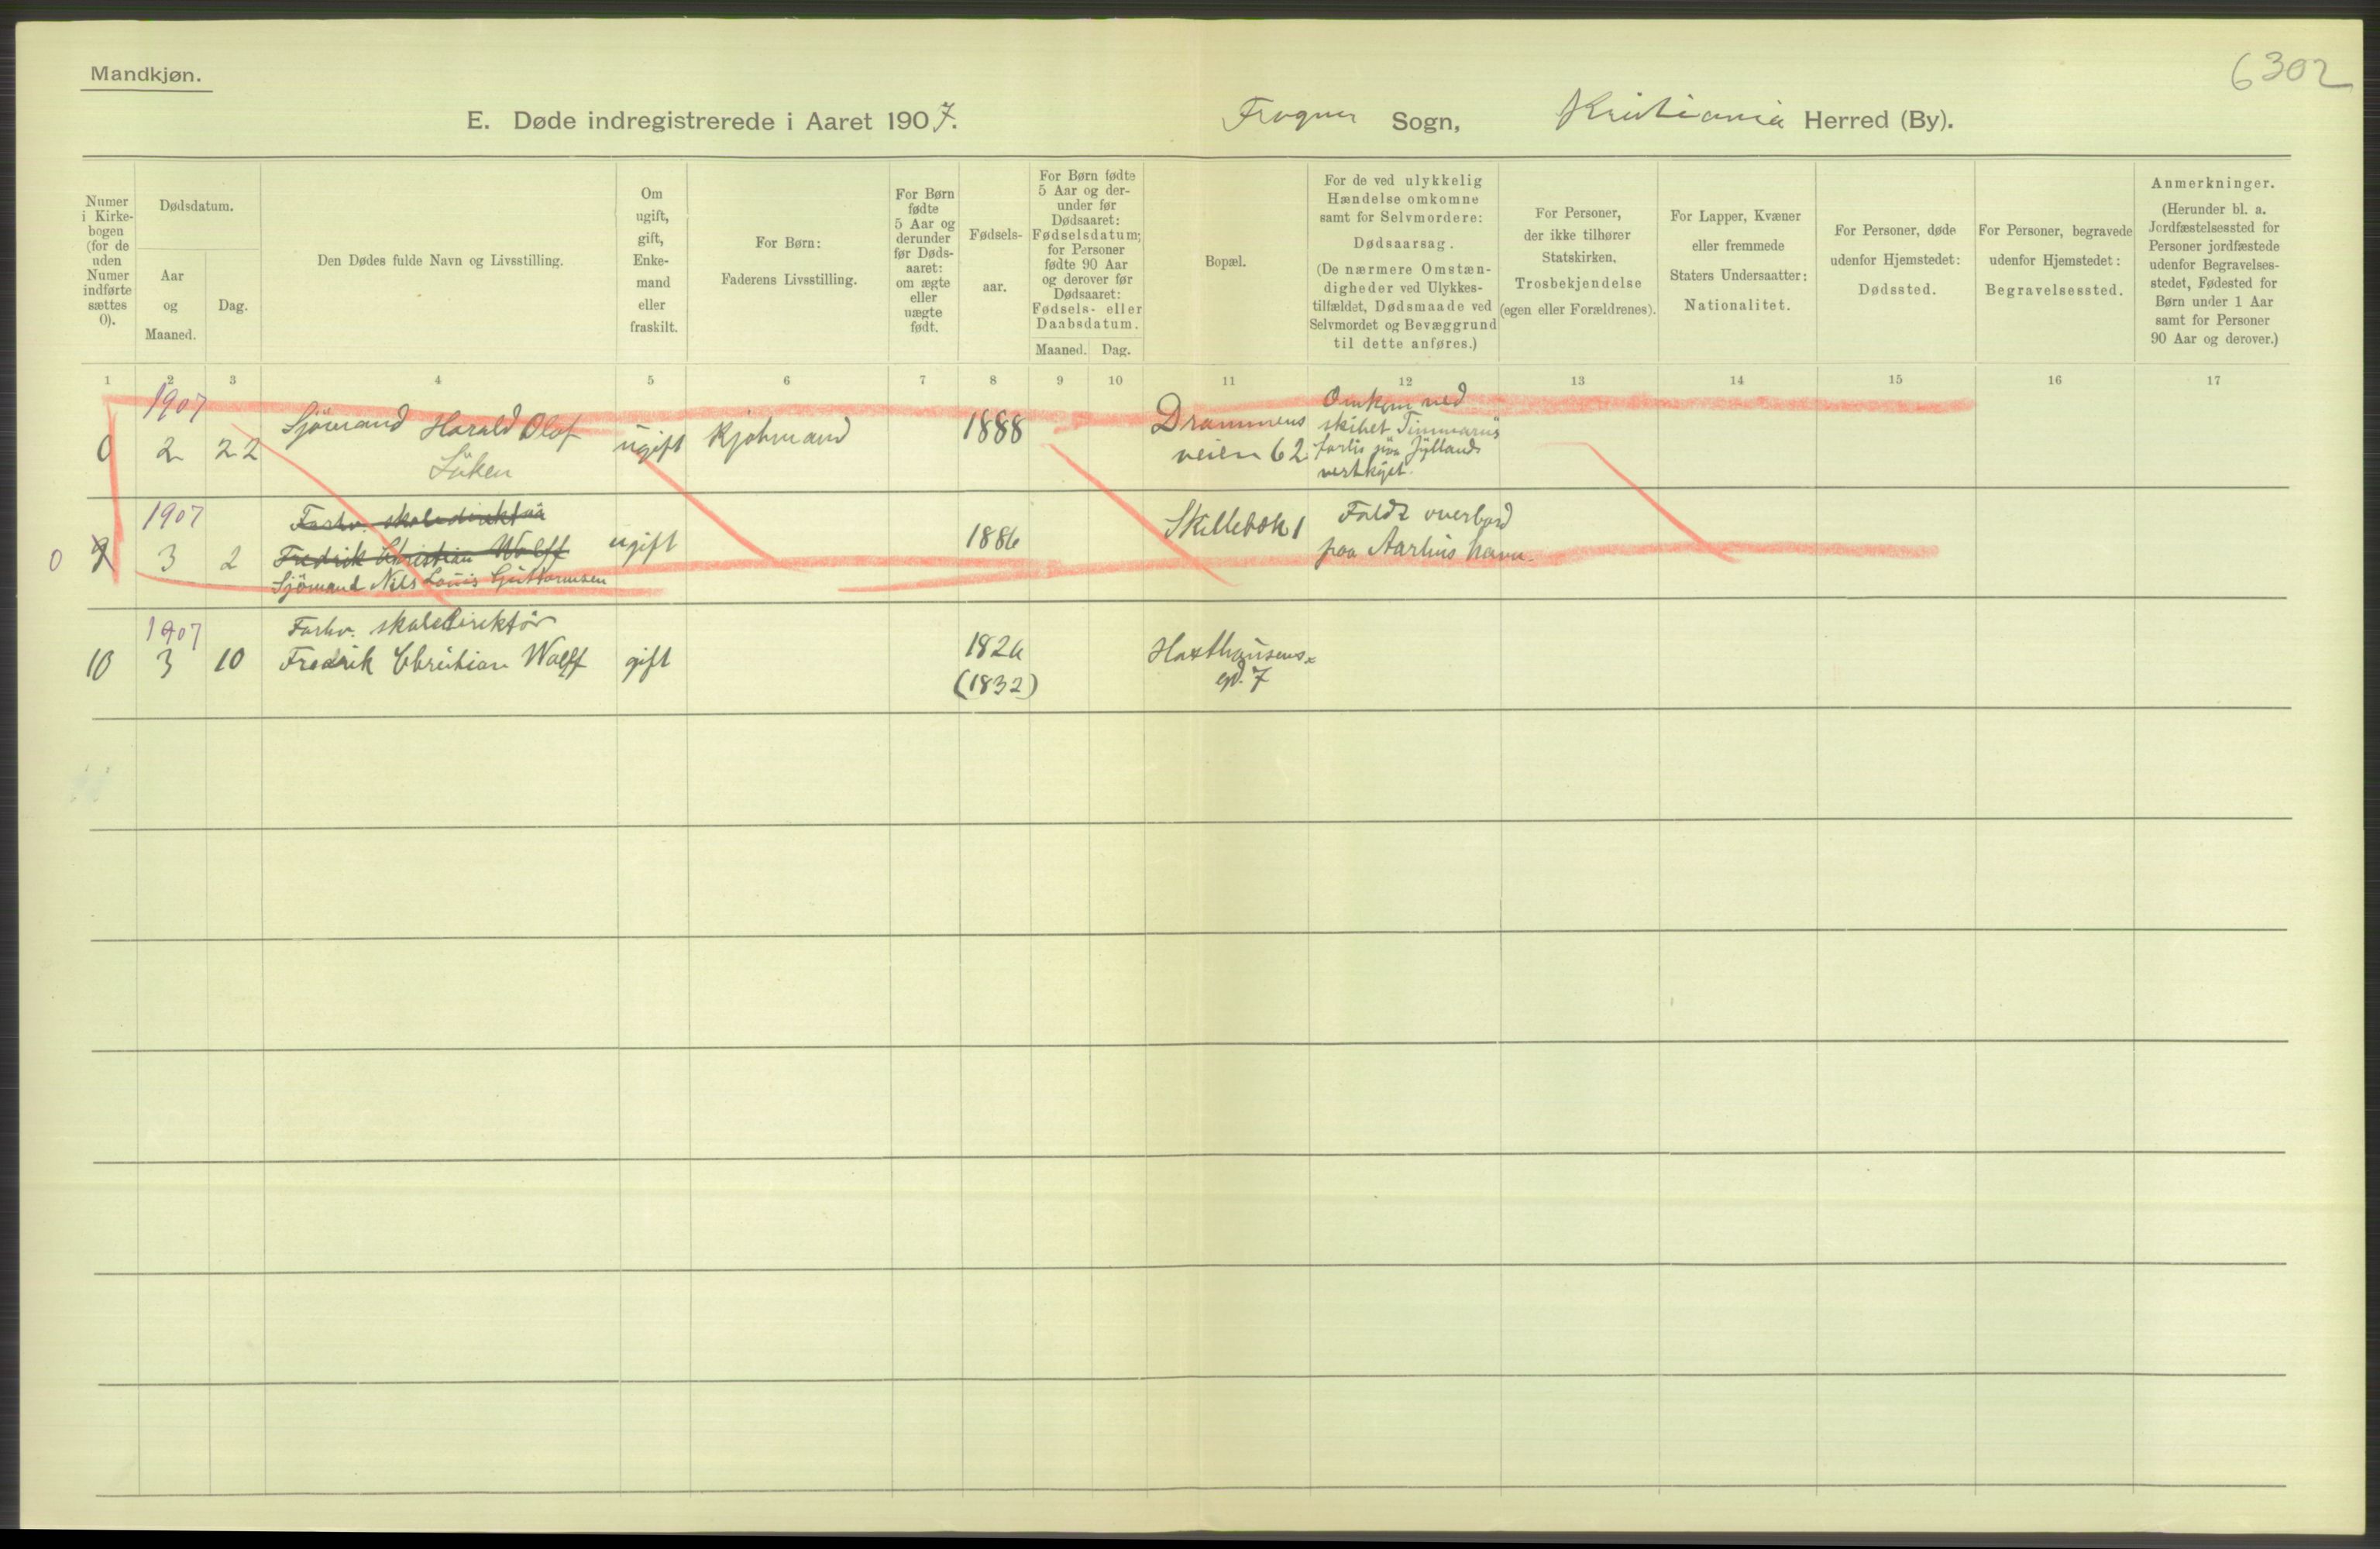 Mandkjøn.
6302
E. Døde indregistrerede i Aaret 1907. Frogner Sogn, Kristiania Herred (By).
Numer
i Kirke-
bogen
(for de
uden
Numer
indførte
sættes
0).
Dødsdatum.
Aar
og
Maaned.
Dag.
Den Dødes fulde Navn og Livsstilling.
Om
ugift,
gift,
Enke-
mand
eller
fraskilt.
For Børn:
Faderens Livsstilling.
For Børn
fødte
5 Aar og
derunder
før Døds-
aaret:
om ægte
eller
uægte
født.
Fødsels-
aar.
For Børn fødte
5 Aar og der-
under før
Dødsaaret:
Fødselsdatum;
for Personer
fødte 90 Aar
og derover før
Dødsaaret:
Fødsels- eller
Daabsdatum.
Maaned. Dag.
Bopæl.
For de ved ulykkelig
Hændelse omkomne
samt for Selvmordere:
Dødsaarsag.
(De nærmere Omstæn-
digheder ved Ulykkes-
tilfældet, Dødsmaade ved
Selvmordet og Bevæggrund
til dette anføres.)
For Personer,
der ikke tilhører
Statskirken,
Trosbekjendelse
(egen eller Forældrenes).
For Lapper, Kvæner
eller fremmede
Staters Undersaatter:
Nationalitet.
For Personer, døde
udenfor Hjemstedet:
Dødssted.
For Personer, begravede
udenfor Hjemstedet:
Begravelsessted.
Anmerkninger.
(Herunder bl. a.
Jordfæstelsessted for
Personer jordfæstede
udenfor Begravelses-
stedet, Fødested for
Børn under 1 Aar
samt for Personer
90 Aar og derover.)
1 2 3 4 5 6 7 8 9 10 11 12 13 14 15 16 17
1907
0 2 22
Sjömand Harald Olof
Löken
ugift
Kjøbmand
1888
Drammens
veien 62
Omkom ved
skibet
forlis paa Jyllands
vestkyst.
1907
0 9 3 2
Forhv. skoledirektør
Fredrik Christian Wolff
Sjömand Nils Louis Guttormsen
ugift
1886
Skillebæk 1
Faldt overbord
paa Aarhus havn.
1907
10 3 10
Forhv. skoledirektör
Fredrik Christian Wolff
gift
1826
(1832)
Haxthausens
gd. 7